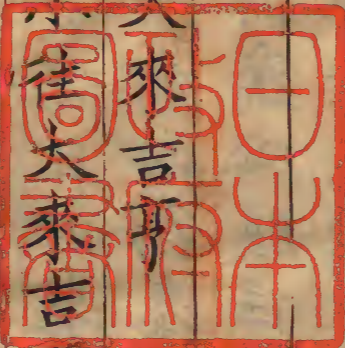 日本
政府
圖書
大來吉亨
小往大來吉